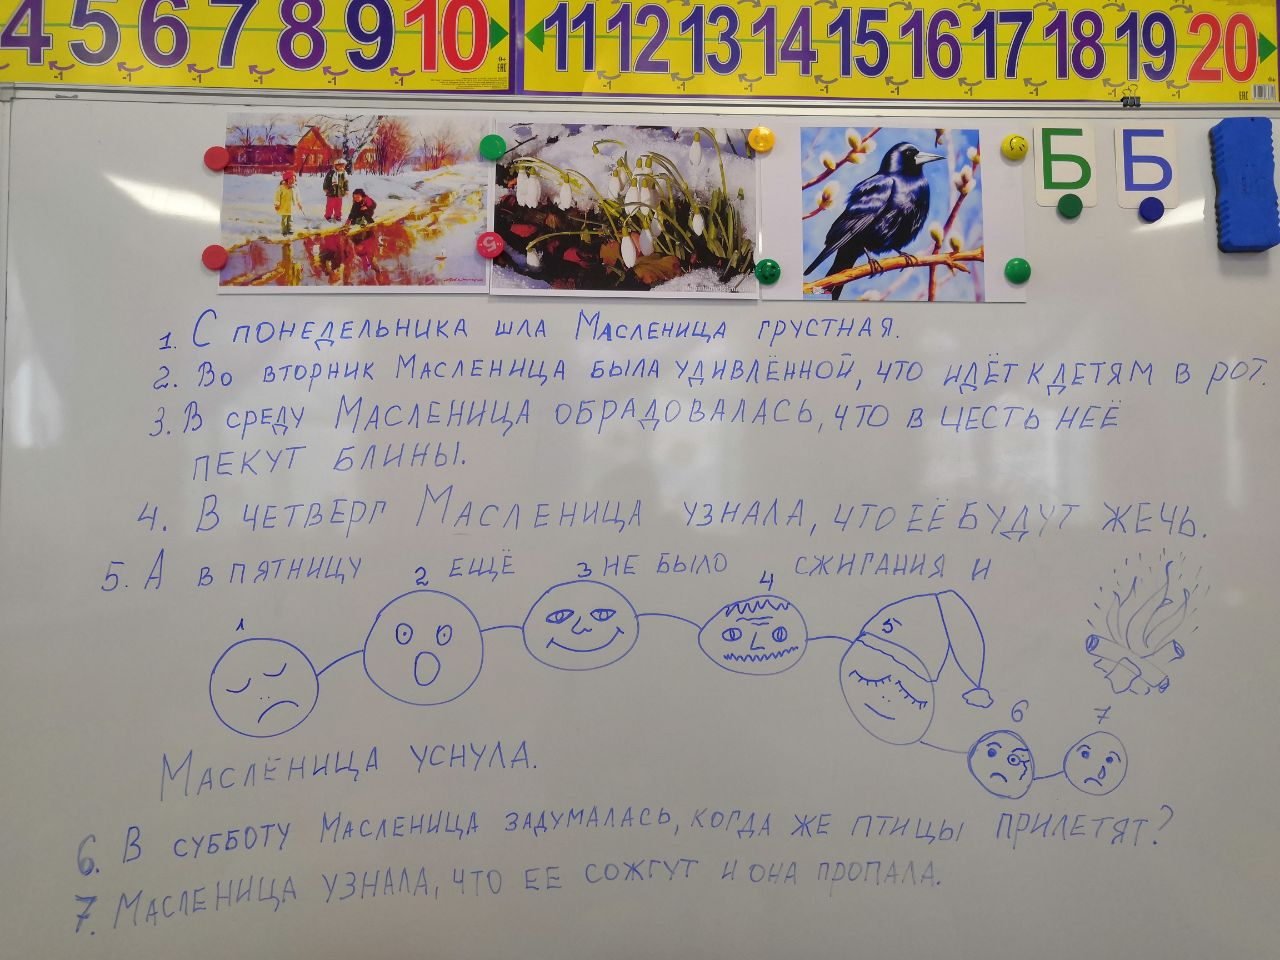 4 5 6 7 8 9 10 11 12 13 14 15 16 17 18 19 20
-1 -1 -1 -1 -1 -1 -1 -1 -1 -1 -1 -1 -1 -1 -1
Б Б
5
1. С понедельника шла Масленица грустная.
2. Во вторник Масленица была удивлённой, что идёт к детям в рот.
3. В среду Масленица обрадовалась, что в честь неё
пекут блины.
4. В четверг Масленица узнала, что её будут жечь.
5. А в пятницу ещё не было сжигания и
1 2 3 4 5 6 7
Маслёница уснула.
6. В субботу Масленица задумалась, когда же птицы прилетят?
7. Масленица узнала, что ее сожгут и она пропала.